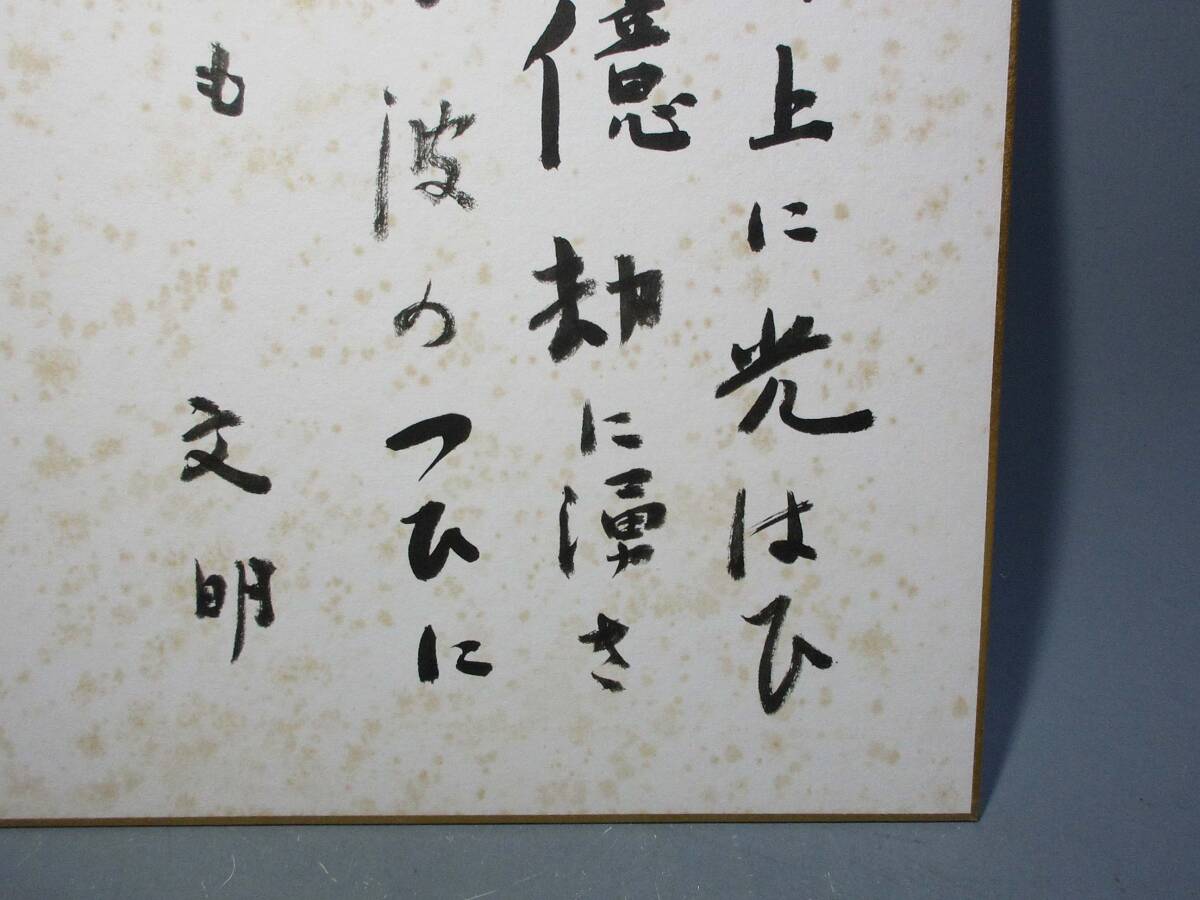 上に光はひ
億劫に湧き
波のつひに
も 文明